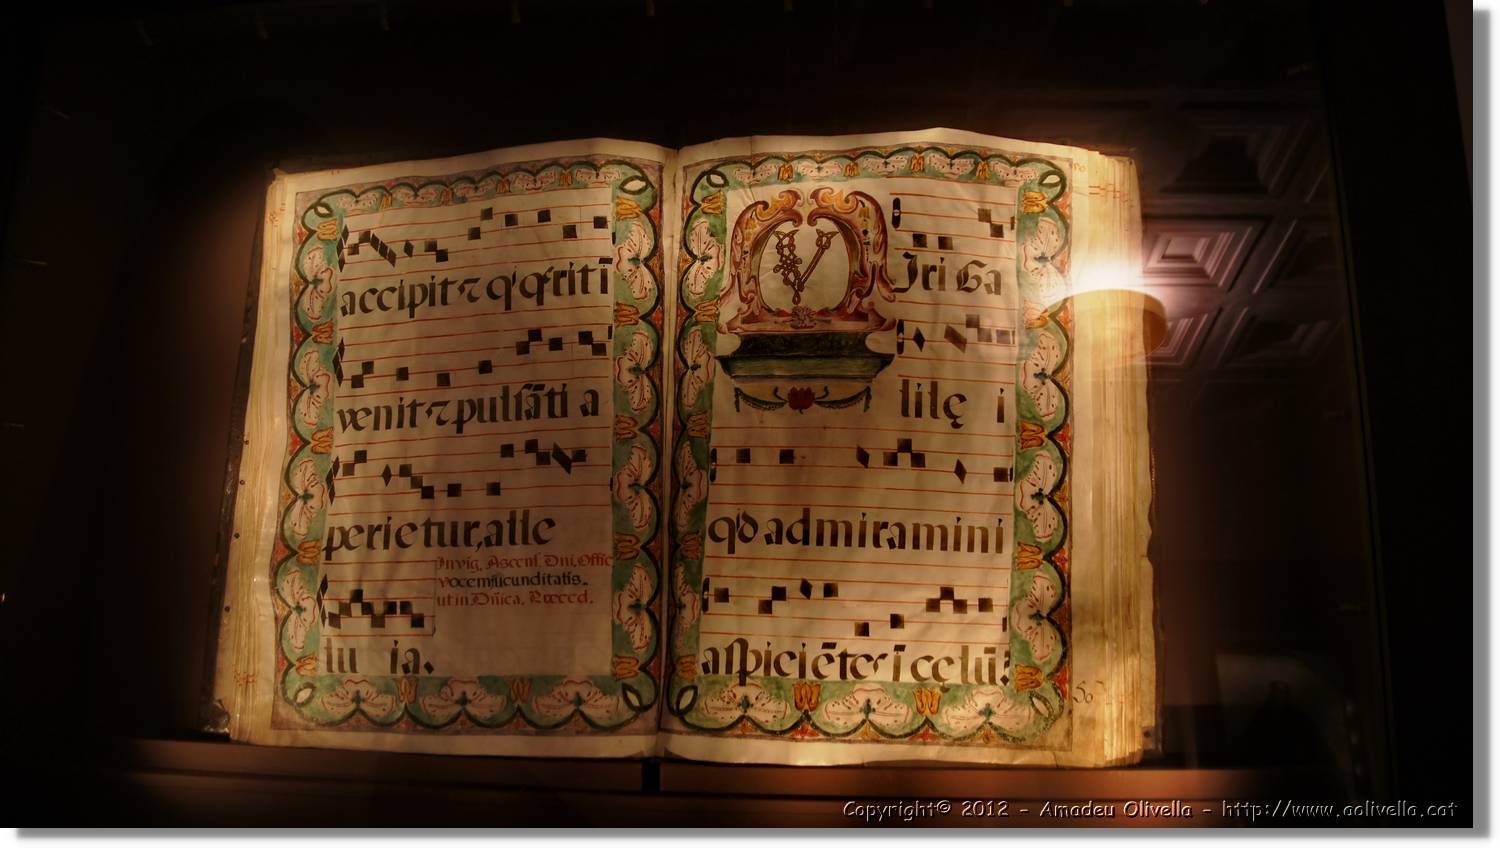 accipit ⁊ q' q̃rit ī
venit ⁊ pulsāti a
perietur, alle
In vig. Ascens. Dni. Offic
vocem jucunditatis.
ut in Dñica. Præced.
lu ia.
Viri Ga
lilę i
q'd admiramini
aspiciētes ī cęlū?
Copyright© 2012 - Amadeu Olivella - http://www.aolivella.cat